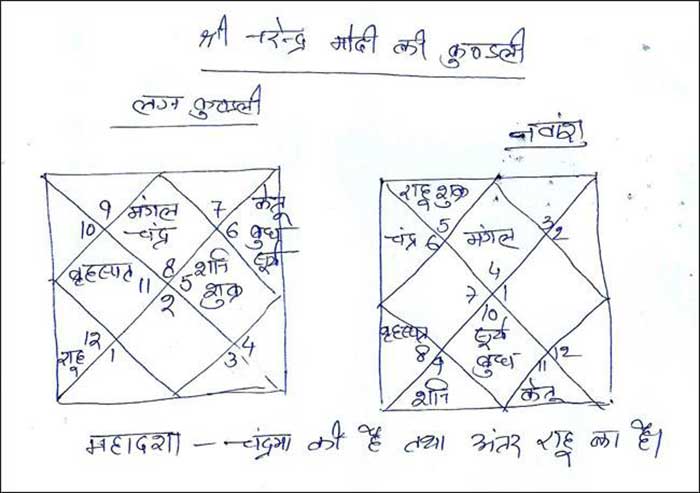 श्री नरेन्द्र मोदी की कुण्डली
लग्न कुण्डली
नवांश
9 मंगल 7 केतू
10 चंद्र 6 बुध
सूर्य
बृहस्पत 11 8 5 शनि
2 शुक्र
12 4
राहू 1 3
राहू शुक्र
5 3
चंद्र 6 मंगल 2
4
7 1
10
बृहस्पत सूर्य
8 बुध 12
9 11
शनि केतू
महादशा - चंद्रमा की है तथा अंतर राहू का है।